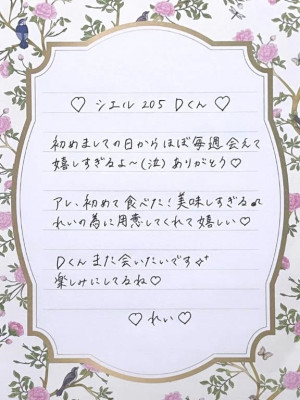 ♡ シエル 205 Dくん ♡
初めましての日からほぼ毎週会えて
嬉しすぎるよ～(泣)ありがとう♡
アレ、初めて食べた!美味しすぎる♪
れいの為に用意してくれて嬉しい♡
Dくんまた会いたいです✨
楽しみにしてるね♡
♡ れい ♡